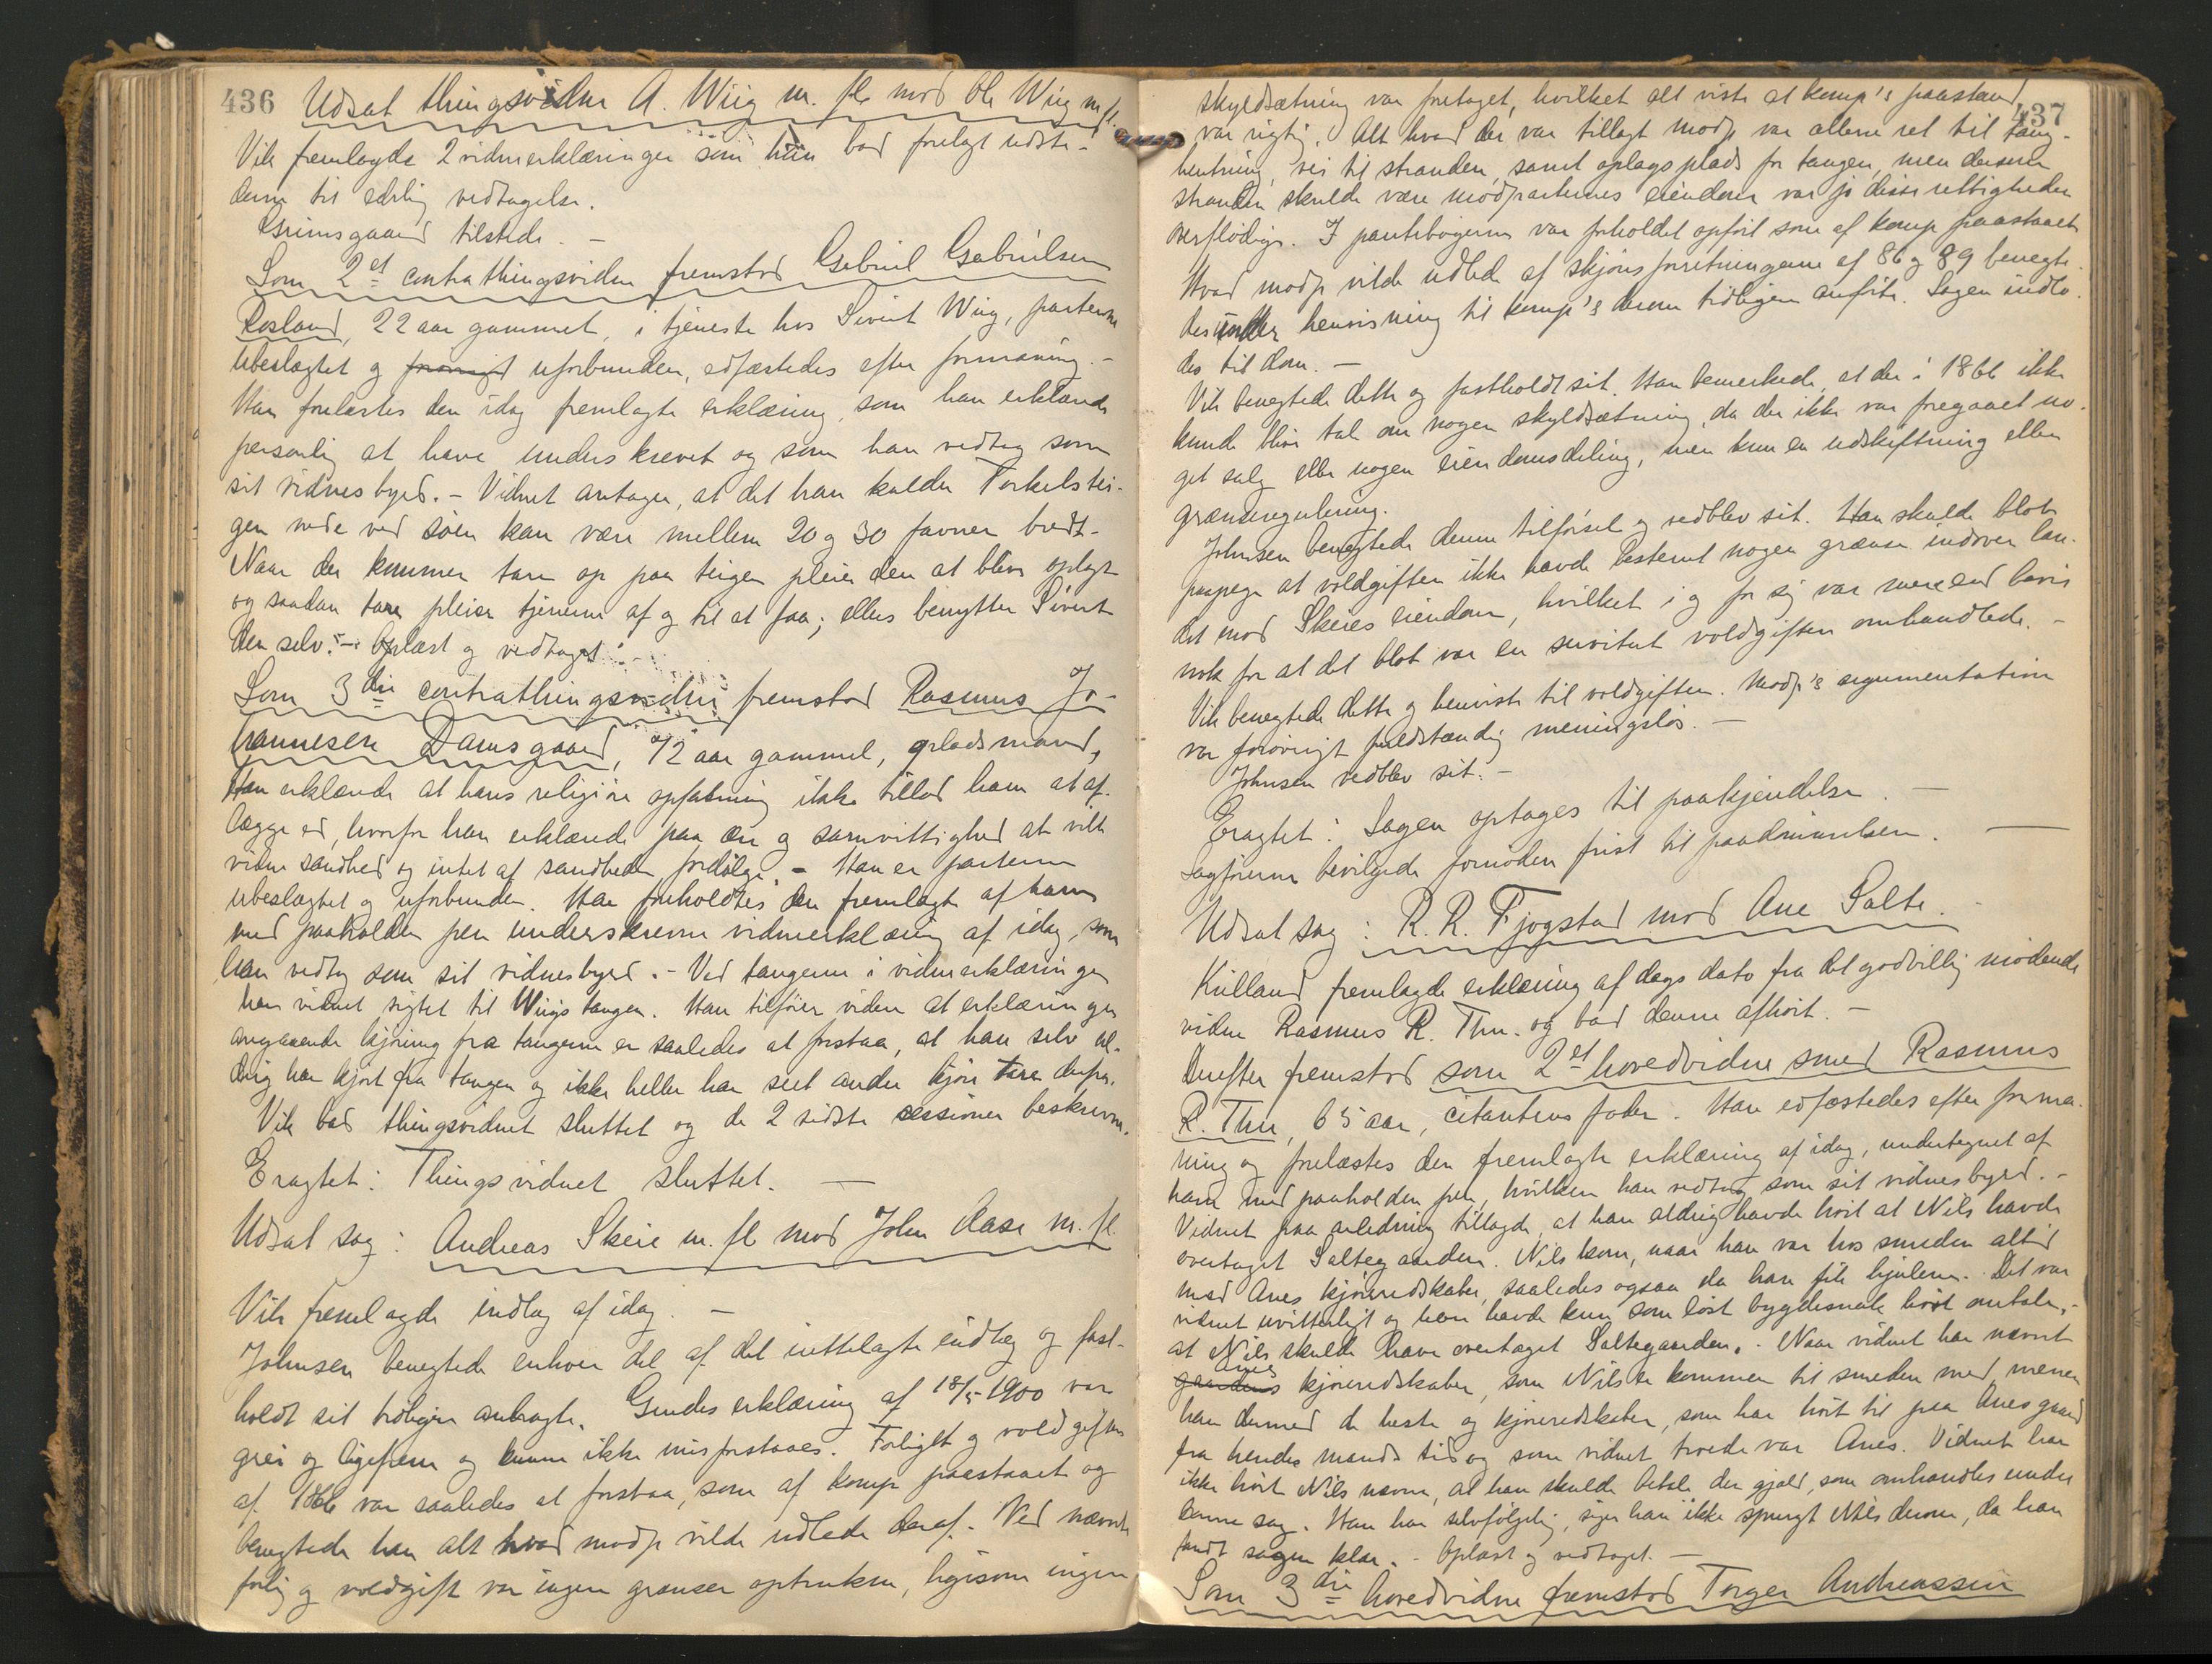 436
Udsat thingsvidne A. Wiig m. fl. mod Ole Wiig m. fl.
Vik fremlagde 2 vidneerklæringer som han bad forelagt udste-
derne til edelig vedtagelse.
Grimsgaard tilstede. –
Som 2et contrathingsvidne fremstod Gabriel Gabrielsen
Rosland, 22 aar gammel, i tjeneste hos Sivert Wiig, parterne
ubeslægtet og uforbunden, edfæstedes efter formaning. –
Han forelæstes den idag fremlagte erklæring, som han erklærede
personlig at have underskrevet og som han vedtog som
sit vidnesbyrd. – Vidnet antager, at det han kalder Torkelstei-
gen nede ved søen kan være mellem 20 og 30 favner bredt. –
Naar der kommer tare op paa teigen pleier den at blive oplagt
og saadan tare pleier tjenerne af og til at faa; ellers benytter Sivert
den selv. – Oplæst og vedtaget. –
Som 3die contrathingsvidne fremstod Rasmus Jo-
hannesen Damsgaard, 72 aar gammel, pladsmand,
Han erklærede at hans religiøse opfatning ikke tillod ham at af-
lægge ed, hvorfor han erklærede paa ære og samvittighed at ville
vidne sandhed og intet af sandheden fordølge. – Han er parterne
ubeslægtet og uforbunden. Han foreholdtes den fremlagte af ham
med paaholden pen underskrevne vidneerklæring af idag, som
han vedtog som sit vidnesbyrd. – Ved tangerne i vidneerklæringen
har vidnet sigtet til Wiigstangen. Han tilføier videre at erklæringen
angaaende kjøring fra tangerne er saaledes at forstaa, at han selv al-
drig har kjørt fra tangen og ikke heller har seet andre kjøre tare derfra.
Vik bad thingsvidnet sluttet og de 2 sidste sessioner beskrevne.
Eragtet: Thingsvidnet sluttet. –
Udsat sag: Andreas Skeie m. fl. mod John Aase m. fl.
Vik fremlagde indlæg af idag. –
Johnsen benegtede enhver del af det irettelagte indlæg og fast-
holdt sit tidligere anbragte. Gudes erklæring af 18/5 1900 var
grei og ligefrem og kunne ikke misforstaaes. Forliget og voldgiften
af 1866 var saaledes at forstaa, som af komp paastaaet og
benegtede han alt hvad modp vilde udlede deraf. Ved nævnte
forlig og voldgift var ingen grænser optrukne, ligesom ingen
437
skyldsætning var foretaget, hvilket alt viste at komp's paastand
var rigtig. Alt hvad der var tillagt modp var allene ret til tang-
hentning, vei til stranden, samt oplagsplads for tangen, men dersom
stranden skulde være modparternes eiendom var jo disse rettigheder
overflødige. I pantebøgerne var forholdet opført som af komp paastaaet.
Hvad modp vilde udlede af skjønsforretningerne af 86 og 89 benegte-
des under henvisning til komp's derom tidligere anførte. Sagen indlo-
des til dom. –
Vik benegtede dette og fastholdt sit. Han bemerkede, at der i 1866 ikke
kunde blive tale om nogen skyldsætning, da der ikke var foregaaet no-
get salg eller nogen eiendomsdeling, men kun en udskiftning eller
grænseregulering.
Johnsen benegtede denne tilførsel og vedblev sit. Han skulde blot
paapege at voldgiften ikke havde bestemt nogen grænse indover lan-
det mod Skeies eiendom, hvilket i og for sig var mere end bevis
nok for at det blot var en servitut voldgiften omhandlede. –
Vik benegtede dette og henviste til voldgiften. Modp's argumentation
var forøvrigt fuldstændig meningsløs. –
Johnsen vedblev sit. –
Eragtet: Sagen optages til paakjendelse. –
Sagførerne bevilgede fornøden frist til paadømmelsen. –
Udsat sag: R. R. Fjogstad mod Ane Salte. –
Kielland fremlagde erklæring af dags dato fra det godvillig mødende
vidne Rasmus R. Thu. og bad denne afhørt. –
Derefter fremstod som 2et hovedvidne smed Rasmus
R. Thu, 65 aar, citantens fader. Han edfæstedes efter forma-
ning og forelæstes den fremlagte erklæring af idag, undertegnet af
ham med paaholden pen, hvilken han vedtog som sit vidnesbyrd. –
Vidnet paa anledning tillagde, at han aldrig havde hørt at Nils havde
overtaget Saltegaarden. Nils kom, naar han var hos smeden altid
med Anes kjøreredskaber, saaledes ogsaa da han fik hjulene. Det var
vidnet uvitterligt og han havde kun som løst bygdesnak hørt omtale, –
at Nils skulde have overtaget Saltegaarden. – Naar vidnet har nævnt
gaardens Anes kjøreredskaber, som Nils er kommen til smeden med, mener
han dermed de heste og kjøreredskaber, som har hørt til paa Anes gaard
fra hendes mands tid og som vidnet troede var Anes. Vidnet har
ikke hørt Nils nævne, at han skulde betale den gjæld, som omhandles under
denne sag. Han har selvfølgelig, siger han ikke spurgt Nils derom, da han
fandt sagen klar. – Oplæst og vedtaget. –
Som 3die hovedvidne fremstod Torger Andreassen